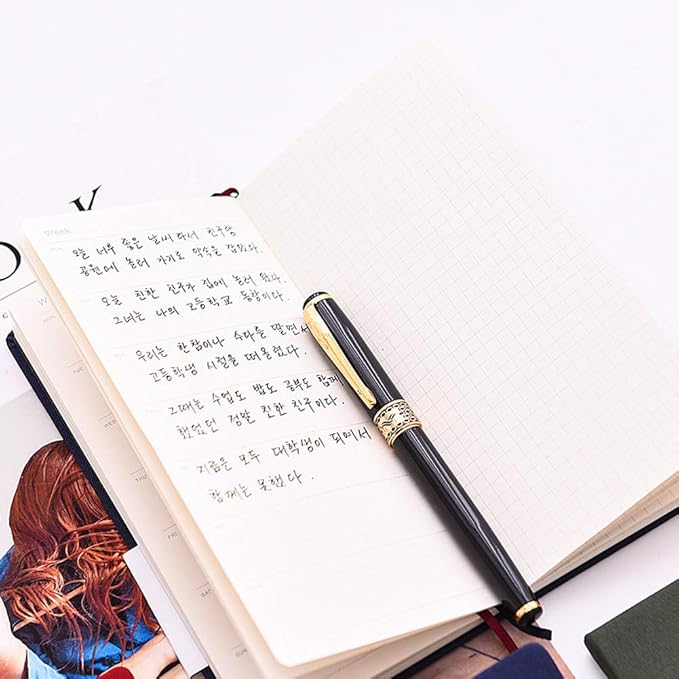 Week
오늘 너무 좋은 날씨 따서 친구랑
공원에 놀러 가기로 약속을 잡았다.
오늘 친한 친구가 집에 놀러 왔다.
그녀는 나의 고등학교 동창이다.
우리는 한참이나 수다를 떨면서
고등학생 시절을 떠올렸다.
그때는 수업도 밥도 공부도 함께
했었던 정말 친한 친구이다.
지금은 모두 대학생이 되어서
함께는 못했다.
W
TUE
WED
THU
FRI
SAT
SUN
Y
O